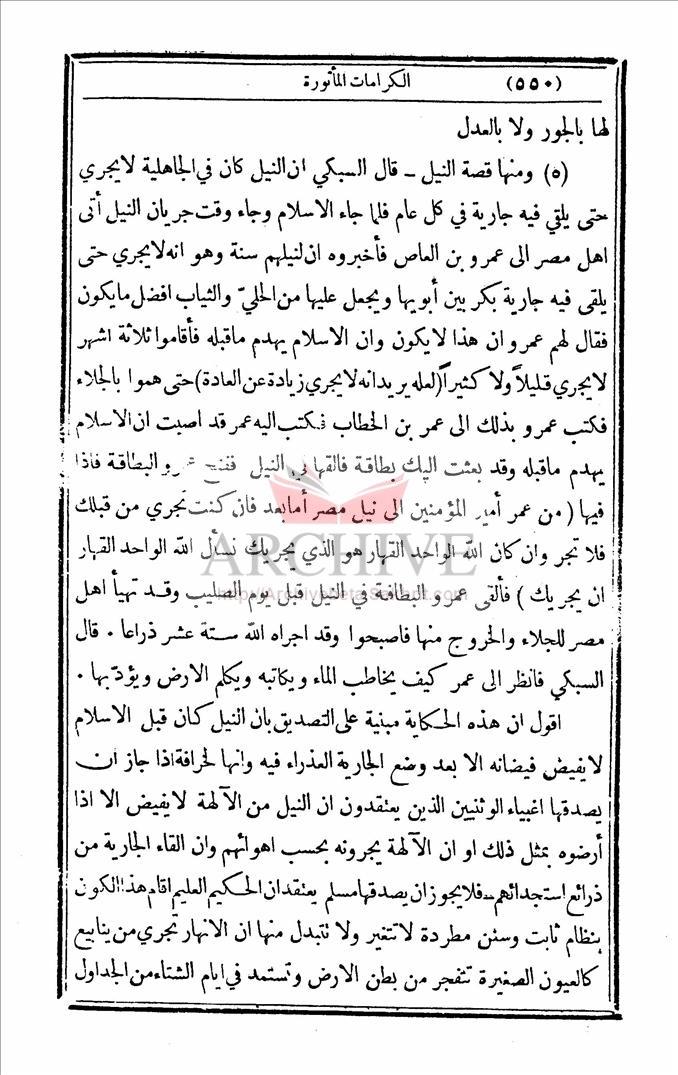 (٥٥٠) الكرامات المأثورة
لها بالجور ولا بالعدل
(٥) ومنها قصة النيل ـ قال السبكي ان النيل كان في الجاهلية لا يجري
حتى يلقى فيه جارية في كل عام فلما جاء الاسلام وجاء وقت جريان النيل أتى
اهل مصر الى عمرو بن العاص فأخبروه ان لنيلهم سنة وهو انه لا يجري حتى
يلقى فيه جارية بكر بين أبويها ويجعل عليها من الحلي والثياب افضل ما يكون
فقال لهم عمرو ان هذا لا يكون وان الاسلام يهدم ما قبله فأقاموا ثلاثة اشهر
لا يجري قليلاً ولا كثيراً (لعله يريد انه لا يجري زيادة عن العادة) حتى هموا بالجلاء
فكتب عمرو بذلك الى عمر بن الخطاب فكتب اليه عمر قد اصبت ان الاسلام
يهدم ما قبله وقد بعثت اليك بطاقة فالقها في النيل ففتح عمرو البطاقة فاذا
فيها ( من عمر أمير المؤمنين الى نيل مصر أما بعد فان كنت تجري من قبلك
فلا تجر وان كان الله الواحد القهار هو الذي يجريك نسأل الله الواحد القهار
ان يجريك ) فألقى عمرو البطاقة في النيل قبل يوم الصليب وقد تهيأ اهل
مصر للجلاء والخروج منها فاصبحوا وقد اجراه الله ستة عشر ذراعا . قال
السبكي فانظر الى عمر كيف يخاطب الماء ويكاتبه ويكلم الارض ويؤدبها .
اقول ان هذه الحكاية مبنية على التصديق بان النيل كان قبل الاسلام
لا يفيض فيضانه الا بعد وضع الجارية العذراء فيه وانها لخرافة اذا جاز ان
يصدقها اغبياء الوثنيين الذين يعتقدون ان النيل من الآلهة لا يفيض الا اذا
أرضوه بمثل ذلك او ان الآلهة يجرونه بحسب اهوائهم وان القاء الجارية من
ذرائع استجدائهم ـ فلا يجوز ان يصدقها مسلم يعتقد ان الحكيم العليم اقام هذا الكون
بنظام ثابت وسنن مطردة لا تتغير ولا تتبدل منها ان الانهار تجري من ينابيع
كالعيون الصغيرة تتفجر من بطن الارض وتستمد في ايام الشتاء من الجداول
ARCHIVE